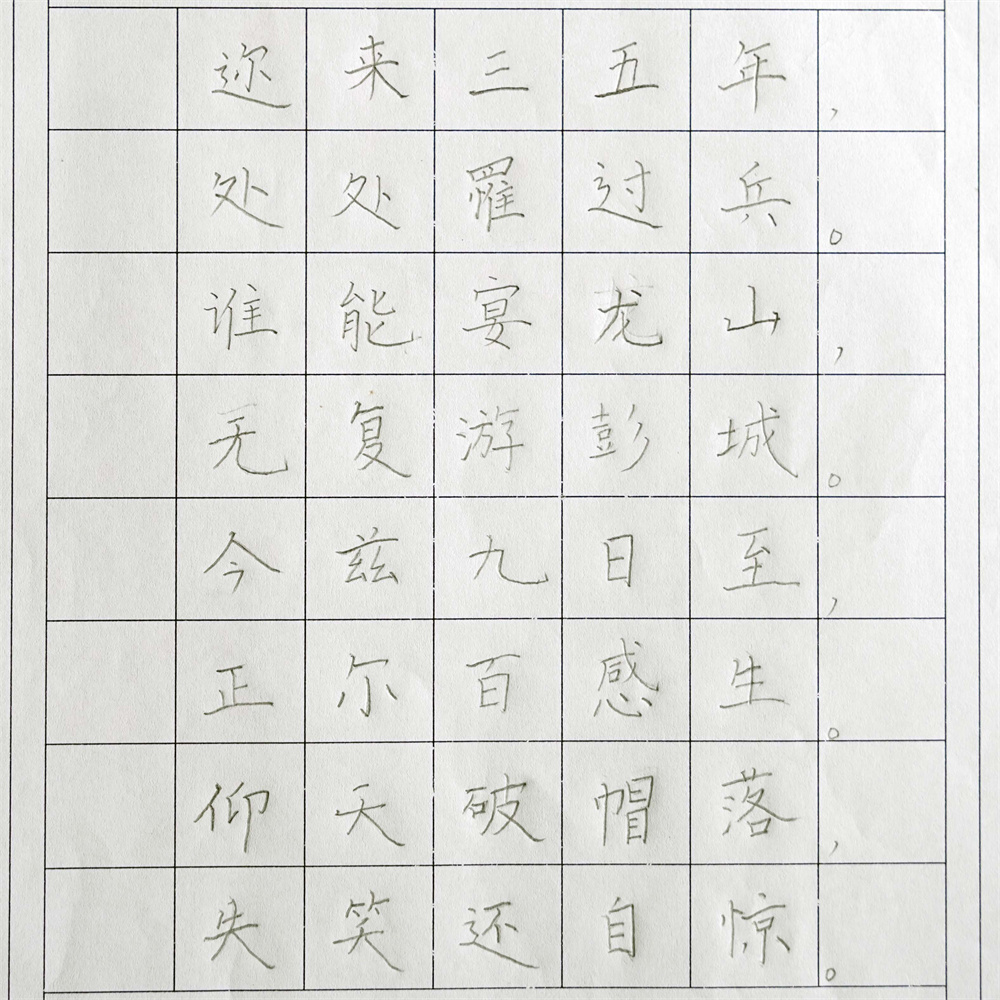 迩来三五年，
处处罹过兵。
谁能宴龙山，
无复游彭城。
今兹九日至，
正尔百感生。
仰天破帽落，
失笑还自惊。